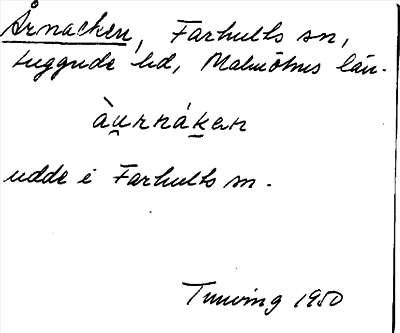 Årnacken, Farhults sn,
Luggude hd, Malmöhus län.
àu̯rnák̠en
udde i Farhults sn.
Tuuving 1950